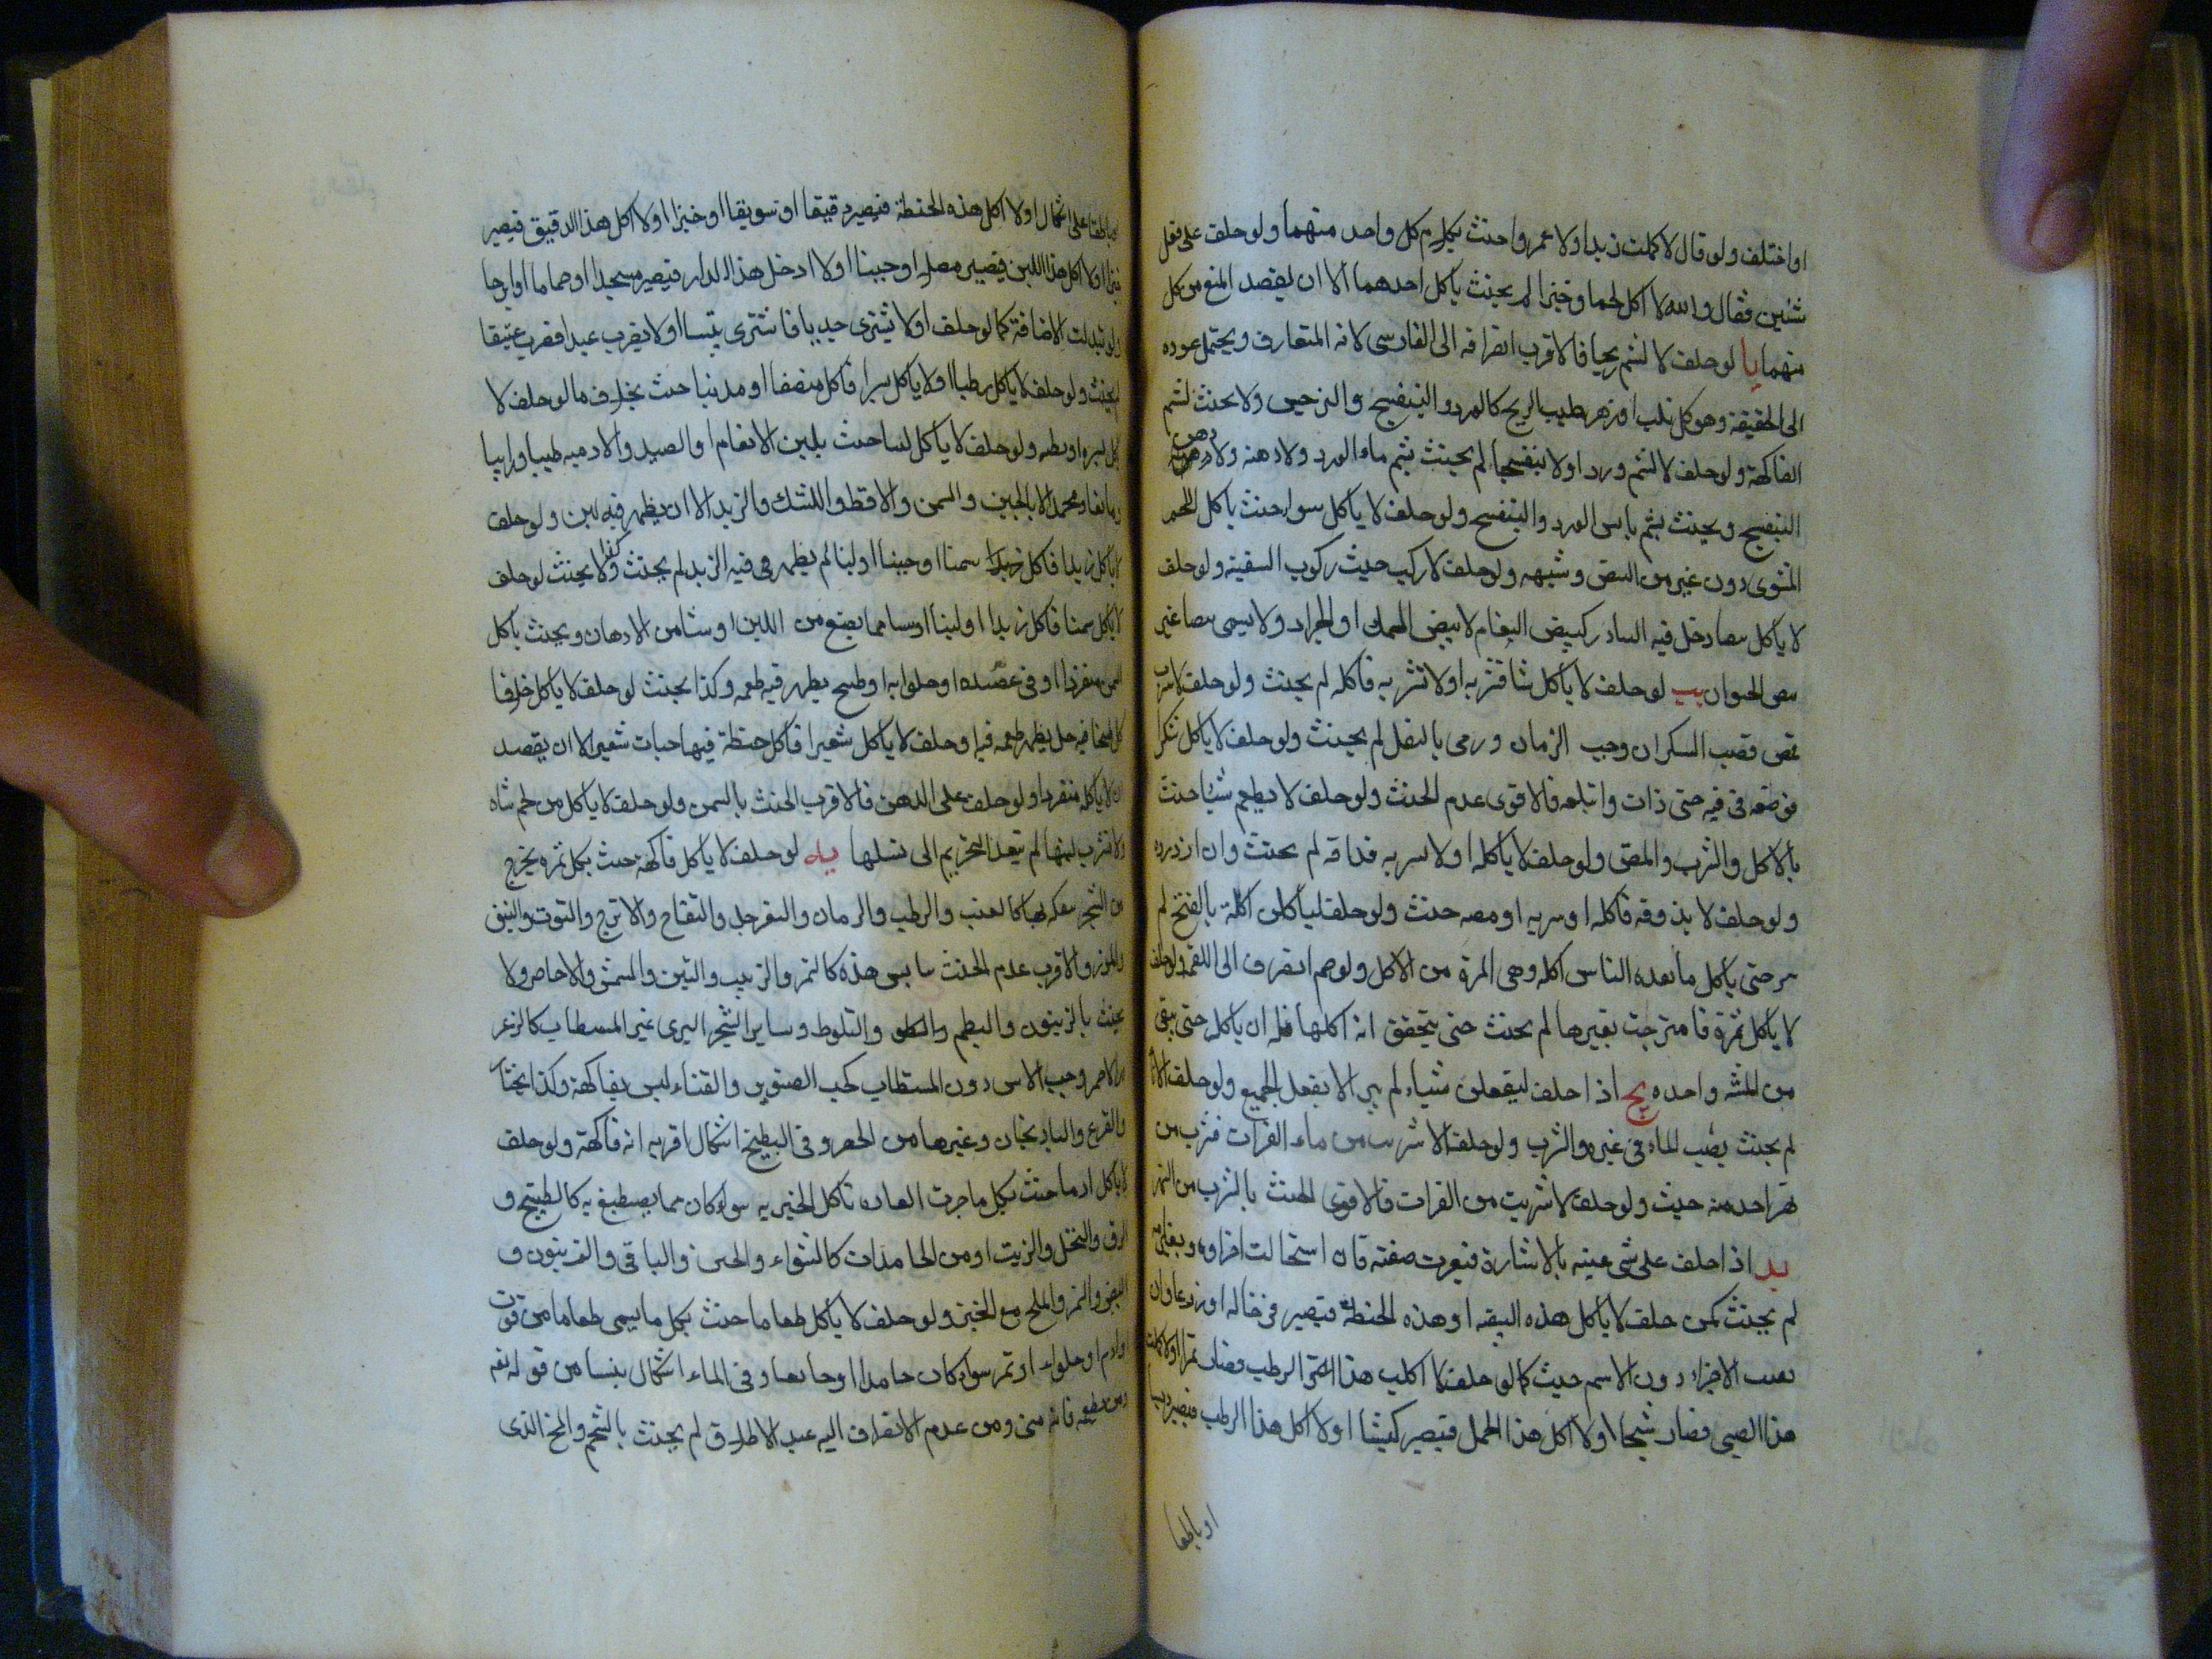 او اختلف ولو قال لا كلمت زيدا ولا عمروا حنث بكلام كل واحد منهما ولو حلف على فعل
شئين فقال والله لا اكل لحما وخبزا لم يحنث باكل احدهما الا ان يقصد المنع من كل
منهما يا لو حلف لا لشم ريحانا فالاقرب انصرافه الى الفارسى لانه المتعارف ويحتمل عوده
الى الحقيقة وهو كل نبت او زهر طيب الريح كالورد والبنفسج والنرجس ولا يحنث لشم
الفاكهة ولو حلف لا لشم وردا ولا بنفسجا لم يحنث بشم ماء الورد ولا دهنه ولا دهن
البنفسج ويحنث بشم يابس الورد والبنفسج ولو حلف لا ياكل سواء حنث باكل اللحم
المشوى دون غيره من البيض وشبهه ولو حلف لا ركب حنث ركوب السفينة ولو حلف
لا ياكل بيضا دخل فيه النادر كبيض النعام لا بيض السمك او الجراد ولا يسمى بيضا غير
بيض الحيوان يب لو حلف لا ياكل شيئا فشربه او لا شربه فاكله لم يحنث ولو حلف لا شرب
فمص قصب السكر او حب الرمان ورمى بالثفل لم يحنث ولو حلف لا ياكل سكرا
فوضعه فى فيه حتى ذاب وابتلعه فالاقوى عدم الحنث ولو حلف لا يطعم شيئا حنث
بالاكل والشرب والمص ولو حلف لا ياكله او لا شربه فذاقه لم يحنث وان ازدرده
ولو حلف لا يذوقه فاكله او شربه او مصه حنث ولو حلف لياكلن اكلة بالفتح لم
يبر حتى ياكل ما يعده الناس اكلة وهى المرة من الاكل ولو ضم انصرف الى اللقمة ولو حلف
لا ياكل تمرة فامتزجت بغيرها لم يحنث حتى يتحقق انه اكلها فله ان ياكل حتى يبقى
من واحدة يج اذا حلف ليفعلن شيئا لم يبر الا بفعل الجميع ولو حلف
لم يحنث بصب الماء فى غيره والشرب ولو حلف لا شربت من ماء الفرات فشرب من
نهر اخذ منه حنث ولو حلف لا شربت من الفرات فالاقوى الحنث بالشرب من النهر
يد اذا حلف على شى عينه بالاشارة فتغيرت صفته فان استحالت اجزاؤه
لم يحنث كمن حلف لا ياكل هذه البيضة او هذه الحنطة فتصير فرخا او زرعا وان
بقيت الاجزاء دون الاسم حنث كما لو حلف لا اكلت هذا الرطب فصار تمرا او لا كلمت
هذا الصبى فصار شيخا او لا اكل هذا الحمل فيصير كبشا او لا اكل هذا الرطب فيصير دبسا
او ناطفا
او ناطفا على اشكال او لا اكل هذه الحنطة فيصير دقيقا او سويقا او خبزا او لا اكل هذا الدقيق فيصير
خبزا او لا اكل هذا اللبن فيصير مصلا او جبنا او لا ادخل هذا الدار فيصير مسجدا او حماما او
ولو تبدلت الاضافة كما لو حلف او لا يشترى جديا فاشترى تيسا او لا يضرب عبدا فضرب عتيقا
لم يحنث ولو حلف لا ياكل رطبا او لا ياكل بسرا فاكل منصفا او مذنبا حنث بخلاف ما لو حلف لا
ياكل بسرة او رطبة ولو حلف لا ياكل لبنا حنث بلبن الانعام او الصيد والادميه حليبا ورايبا
ومايعا ومجمدا لا بالجبن والسمن والاقط والكشك والزبد الا ان يظهر فيه لبن ولو حلف
لا ياكل زبدا فاكل سمنا او جبنا او لبنا لم يظهر فيه الزبد لم يحنث وكذا لا يحنث لو حلف
لا ياكل سمنا فاكل زبدا او لبنا او شيئا مما يصنع من اللبن او شيئا من الادهان ويحنث باكل
السمن منفردا او فى عصيدة او حلواء او طبيخ يظهر فيه طعمه وكذا يحنث لو حلف لا ياكل خلا فاكل
طبيخا فيه خل يظهر طعمه فيه او حلف لا ياكل شعيرا فاكل حنطة فيها حبات شعير الا ان يقصد
ان لا ياكله منفردا ولو حلف على الدهن فالاقرب الحنث بالسمن ولو حلف لا ياكل من لحم شاه
ولا شرب لبنها لم يتعد التحريم الى نسلها يه لو حلف لا ياكل فاكهة حنث بكل ثمرة يخرج
من الشجر يتفكه بها كالعنب والرطب والرمان والسفرجل والتفاح والاترج والتوت والنبق
والموز والاقرب عدم الحنث يابس هذه كالتمر والزبيب والتين والمشمش والاجاص ولا
يحنث بالزيتون والبطم والبلوط وساير الشجر البرى غير المستطاب كالزعرور
الاحمر وحب الاس دون المستطاب كحب الصنوبر والقثاء ليس بفاكهة وكذا الخيار
والقرع والباذنجان وغيرها من الخضر وفى البطيخ اشكال اقربه انه فاكهة ولو حلف
لا ياكل ادما حنث بكل ما جرت العادة باكل الخبز به سواء كان مما يصطبغ به كالطبيخ و
المرق والخل والزيت او من الجامدات كالشواء والجبن والباقلى والزيتون و
البيض والتمر والملح مع الخبز ولو حلف لا ياكل طعاما حنث بكل ما يسمى طعاما من قوت
وادام او حلواء او تمر سواء كان جامدا او مايعا وفى الماء اشكال ينشا من قوله تعالى
ومن لم يطعمه فانه منى ومن عدم الانصراف اليه عند الاطلاق لم يحنث بالشحم والمخ الذى